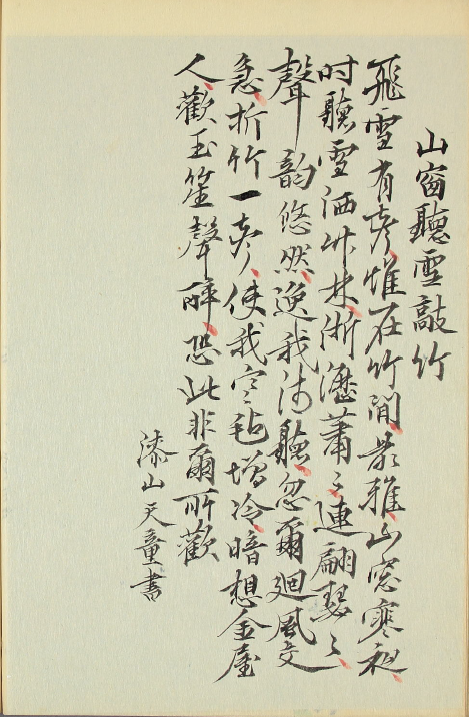 山窗聽雪敲竹
飛雪有声惟在竹間最雅山窓寒夜
时聽雪洒竹林淅瀝蕭々連翩瑟々
聲韵悠然逸我清聽忽爾廻風交
急折竹一声使我寒毡增冷暗想金屋
人歡玉笙聲醉恐此非爾所歡
漆山天童書